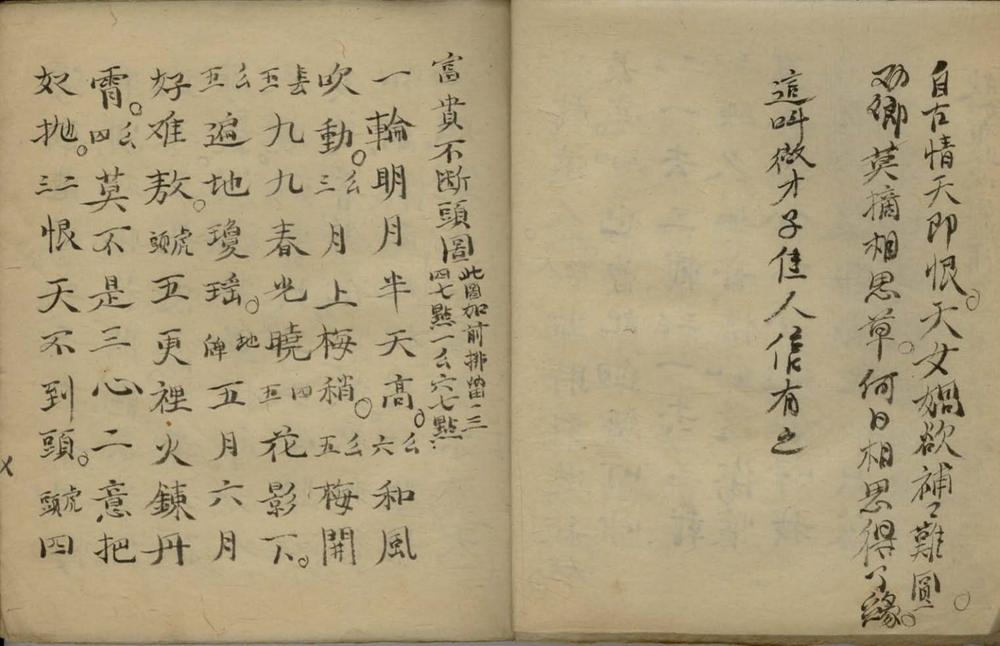 自古情天即恨。天女媧欲補〻難圓。
勸卿莫摘相思草。何日相思得了緣。
這叫做才子佳人信有之
富貴不斷頭圖此圖加前排當一三
四七點一么六七點
一輪明月半天高。么六和風
吹動。么三月上梅稍。么五梅開
長五九九春光曉四五花影下。
么五遍地瓊瑶。地牌五月六月
好难敖。虎頭五更裡火鍊丹
霄。么四莫不是三心二意把
奴抛。二三恨天不到頭。虎頭四